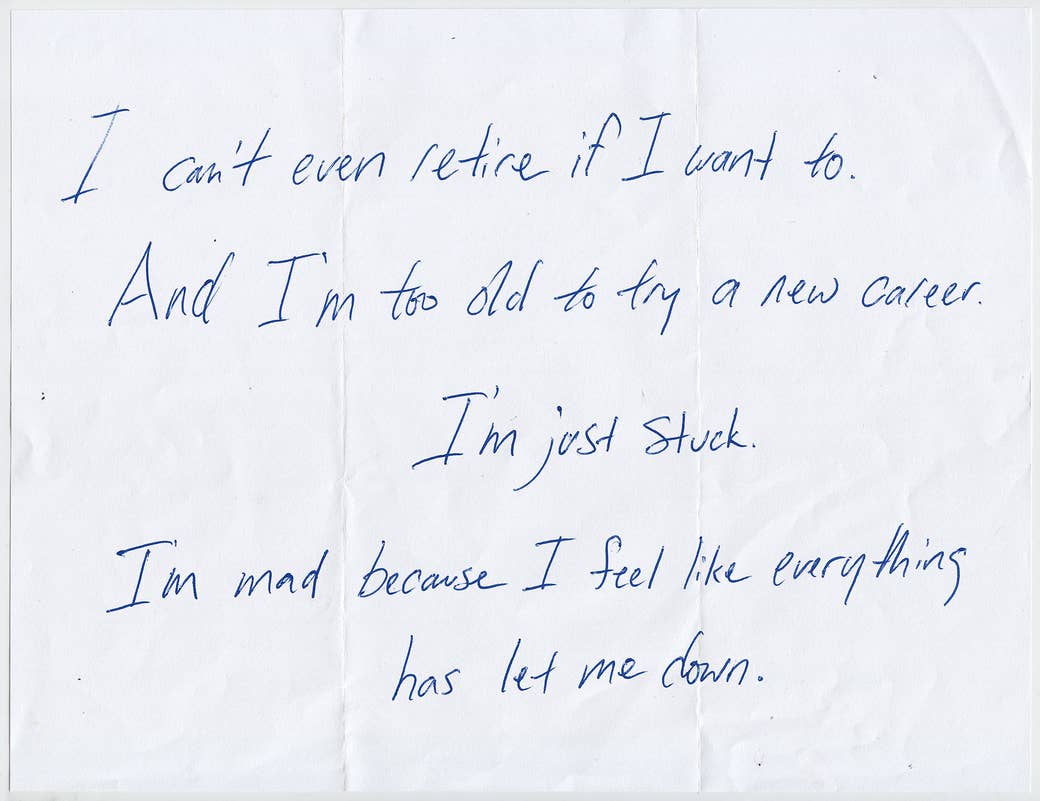 I can't even retire if I want to.
And I'm too old to try a new career.
I'm just stuck.
I'm mad because I feel like everything
has let me down.